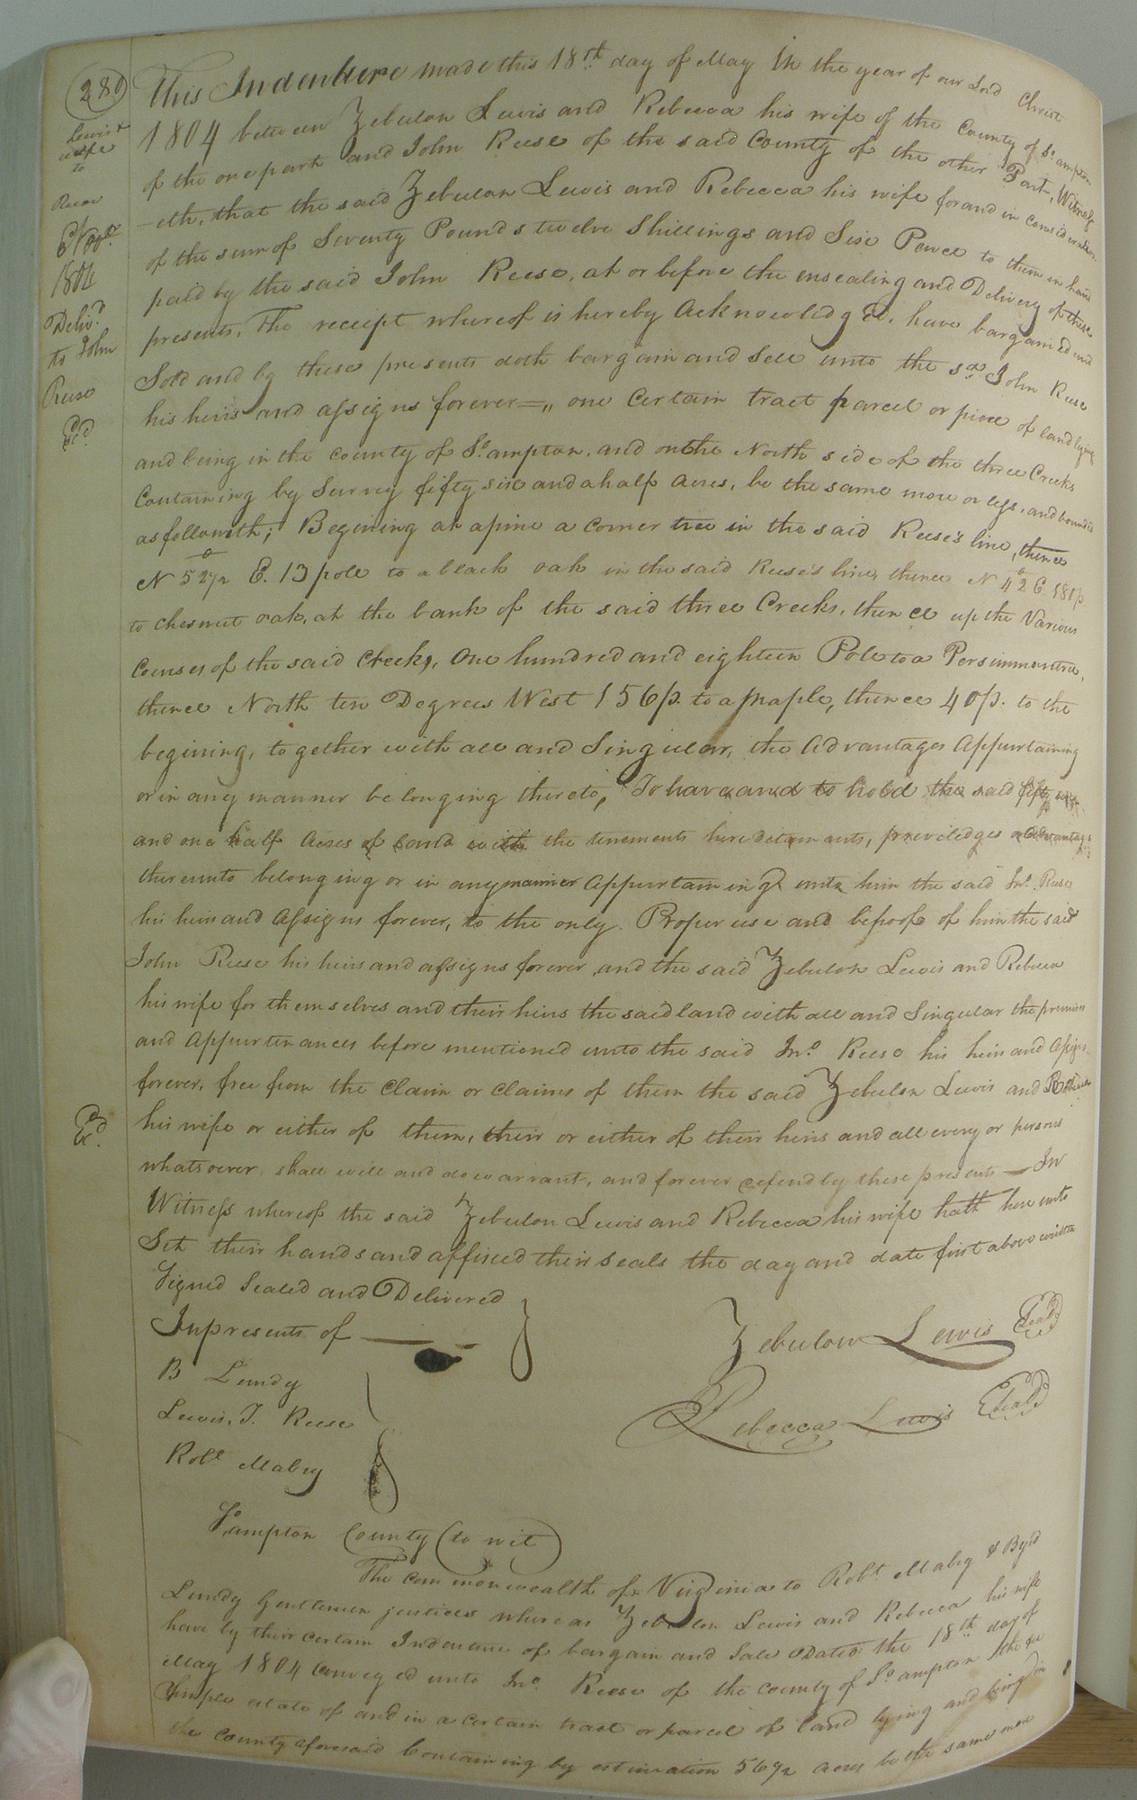 280
Lewis &
wife
to
Reese
Ex.d
1804
Deliv.d
to John
Reese
Ex.d
This Indenture made this 18th day of May In the year of our Lord Christ
1804 between Zebulon Lewis and Rebecca his wife of the County of So ampton
of the one part and John Reese of the said County of the other Part, Witness
-eth, that the said Zebulon Lewis and Rebecca his wife for and in consideration
of the sum of Seventy Pounds twelve Shillings and Six Pence to them in hand
paid by the said John Reese, at or before the ensealing and Delivery of these
presents, The receipt whereof is hereby Acknowledged, have bargained and
Sold and by these presents doth bargain and Sell unto the sd John Reese
his heirs and assigns forever =,, one Certain tract parcel or piece of land lying
and being in the county of So.ampton, and on the North side of the three Creeks
Containing by Survey fifty six and a half Acres, be the same more or less, and bounded
as followeth; Begining at a pine a corner tree in the said Reese's line, thence
N 52½ E. 13 pole to a black oak in the said Reese's line, thence N 42 E 181p
to chesnut oak, at the bank of the said three Creeks, thence up the Various
Courses of the said Creeks, One hundred and eighteen Pole to a Persimmon tree,
thence North ten Degrees West 156p. to a Maple, thence 40p. to the
begining, together with all and Singular, the Advantages Appurtaining
or in any manner belonging thereto, To have and to hold the said fifty six
and one half Acres of Land with the tenements hereditaments, priviledges advantages
thereunto belonging or in any manner Appurtaining unto him the said Jno. Reese
his heirs and Assigns forever, to the only Proper use and behoof of him the said
John Reese his heirs and assigns forever, and the said Zebulon Lewis and Rebecca
his wife for themselves and their heirs the said land with all and Singular the premises
and Appurtenances before mentioned unto the said Jno. Reese his heirs and Assigns
forever, free from the Claim or Claims of them the said Zebulon Lewis and Rebecca
Ex.d
his wife or either of them, their or either of their heirs and all every or persons
whatsoever shall will and do warrant, and forever defend by these presents — In
Witness whereof the said Zebulon Lewis and Rebecca his wife hath hereunto
Set their hands and affixed their seals the day and date first above written
Signed Sealed and Delivered
In presents of
B Lundy
Lewis. T. Reese
Robt Mabry
Zebulon Lewis Seal
Rebecca Lewis Seal
So.ampton County (to wit)
The commonwealth of Virginia to Robt. Mabry & Byrd
Lundy Gentlemen justices whereas Zebulon Lewis and Rebecca his wife
have by their certain Indenture of bargain and Sale Dated the 18th day of
May 1804 Conveyed unto Jno. Reese of the county of So ampton the fee
Simple estate of and in a certain tract or parcel of land lying and being in
the county aforesaid Containing by estimation 56½ acres be the same more